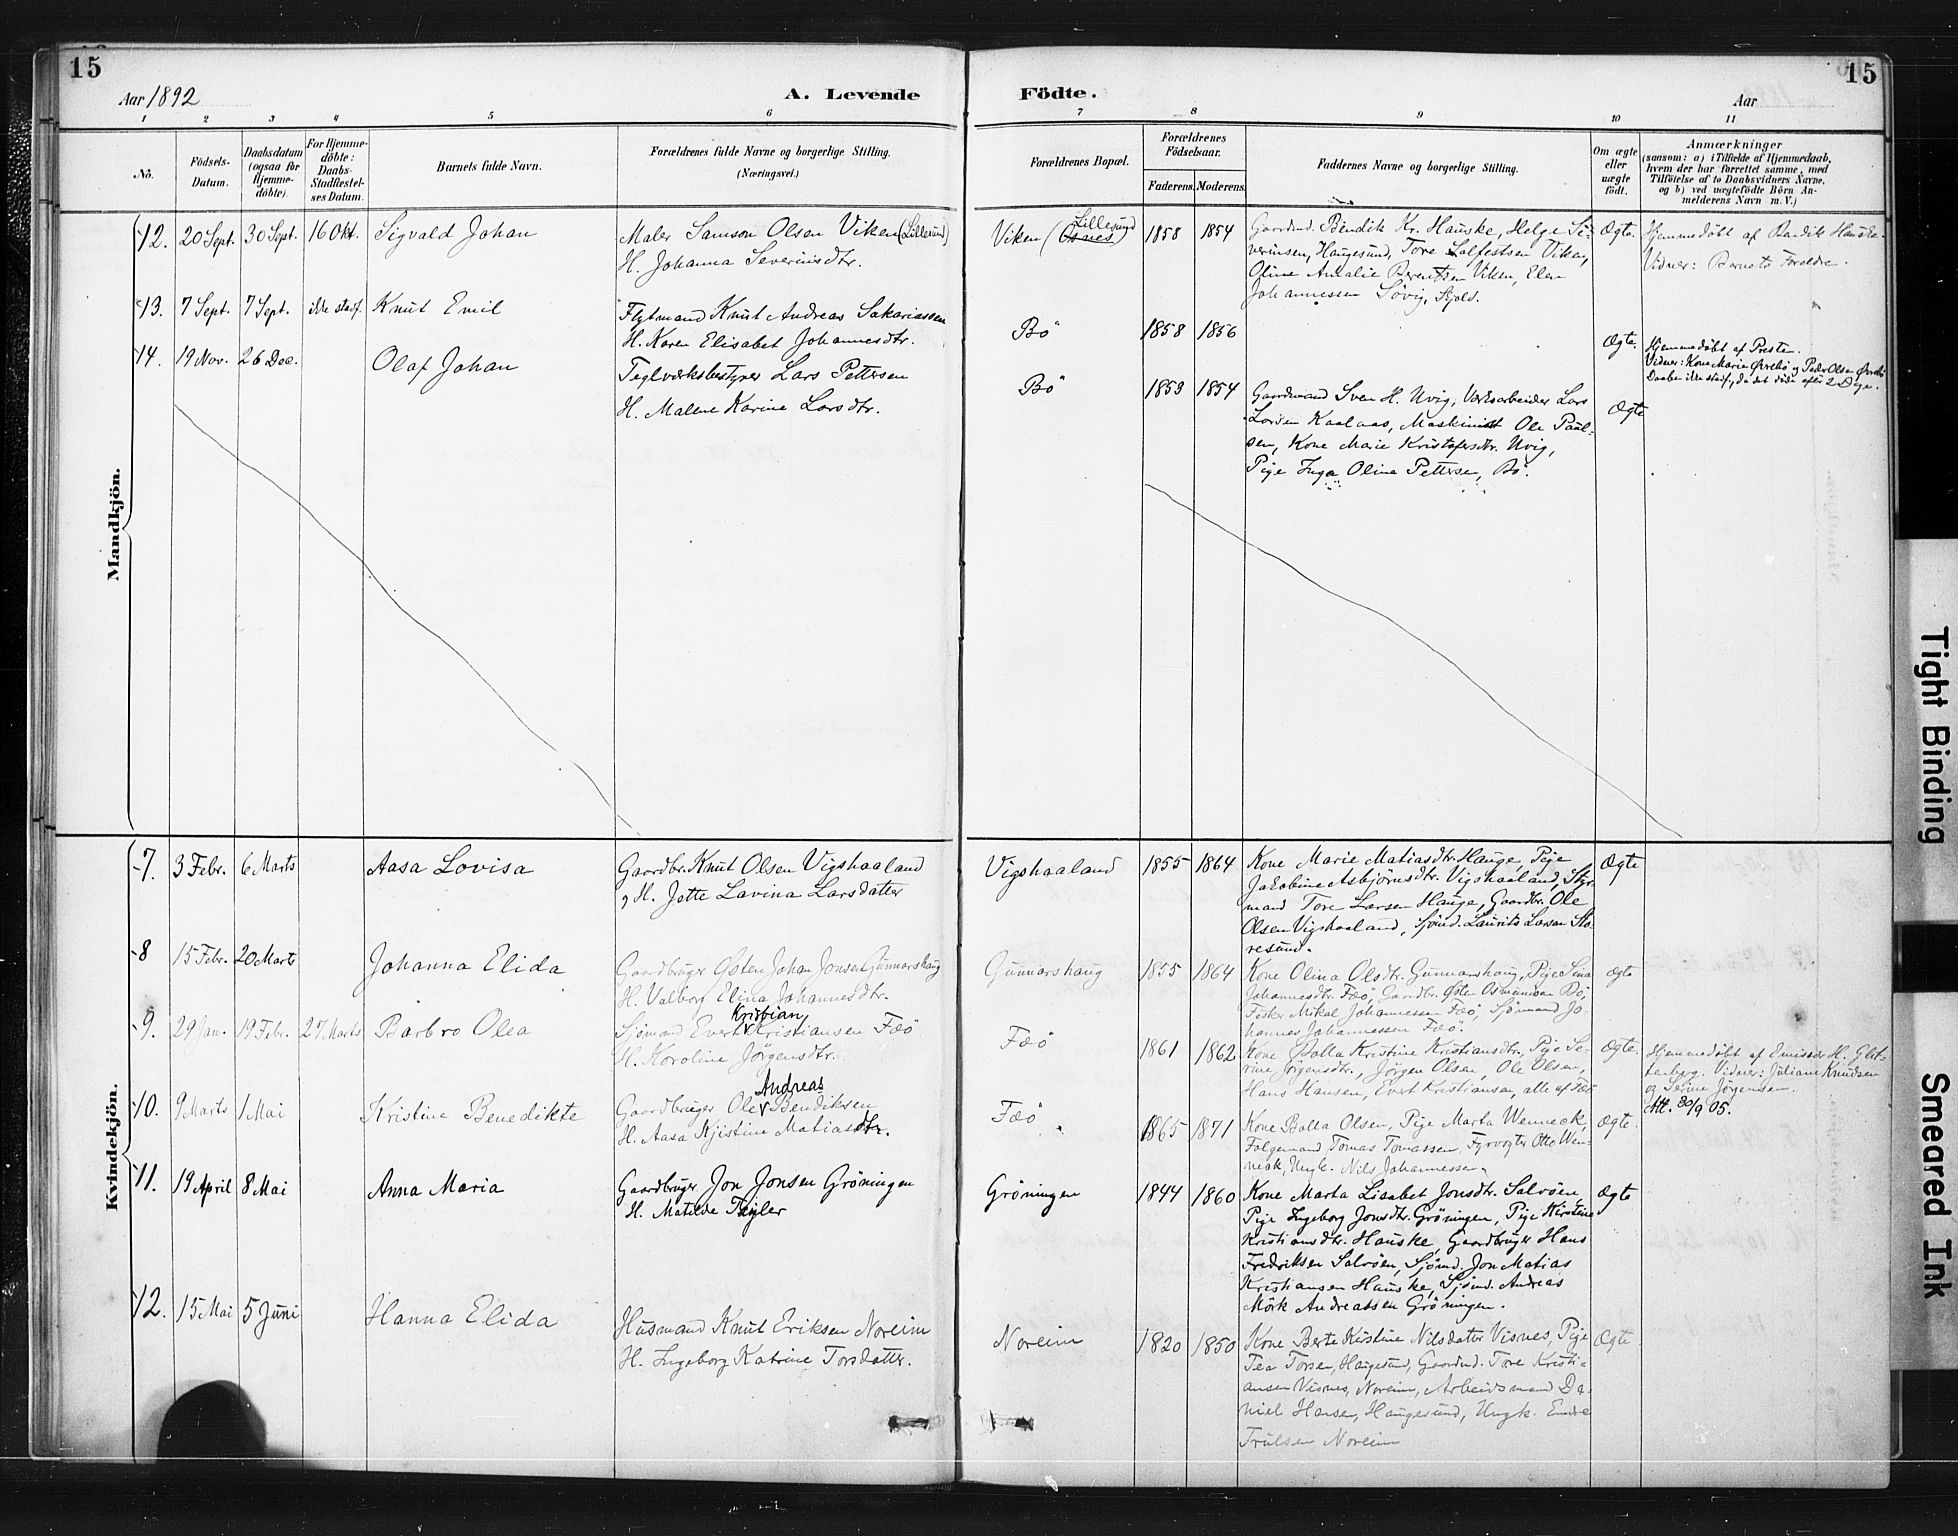 15
15
Aar 1892
A. Levende
Födte.
Aar
1 2 3 4 5 6 7 8 9 10 11
No.
Födsels-
Datum.
Daabsdatum
(ogsaa for
Hjemme-
döbte).
For Hjemme-
döbte:
Daabs-
Stadfæstel-
ses Datum.
Barnets fulde Navn.
Forældrenes fulde Navne og borgerlige Stilling.
(Næringsvei.)
Forældrenes Bopæl.
Forældrenes
Födselsaar.
Faderens. Moderens.
Faddernes Navne og borgerlige Stilling.
Om ægte
eller
uægte
födt.
Anmærkninger
(saasom: a) i Tilfælde af Hjemmedaab,
hvem der har forrettet samme, med
Tilföielse af to Daabsvidners Navne,
og b) ved uægtefödte Börn An-
melderens Navn m. V.)
Mandkjön.
12. 20 Sept. 30 Sept. 16 Okt. Sigvald Johan
Maler Samson Olsen Viken (Lillesund)
H. Johanna Severinsdtr.
Viken (Osnes) Lillesund
1858 1854
Gaardmd. Bendik Kr. Hauske, Helge Si-
verinsen, Haugesund, Tore Salfestsen Viken,
Oline Amalie Berentsen Viken, Elen
Johannessen Sövig, Skjold.
Ægte.
Hjemmedöbt af Bendik Hauske.
Vidner: Barnets Forældre.
13. 7 Sept. 7 Sept. ikke stadf. Knut Emil
Flytmand Knut Andreas Sakariassen
H. Karen Elisabet Johannesdtr.
Bö
1858 1856
Ægte.
Hjemmedöbt af Presten.
Vidner: Kone Marie Øvrebö og Peder Olsen Øvrebö
Daaben ikke stadf., da det döde efter 2 Dage.
14. 19 Nov. 26 Dec. Olaf Johan
Teglværksbestyrer Lars Pettersen
H. Malene Karine Larsdtr.
Bö
1853 1854
Gaardmand Sven H. Uvig, Værksarbeider Lars
Larsen Kaalaas, Maskinist Ole Paul-
sen, Kone Marie Kristofersdtr. Uvig,
Pige Inga Oline Pettersen, Bö.
Ægte
Kvindekjön.
7. 3 Febr. 6 Marts Aasa Lovisa
Gaardbr. Knut Olsen Vigshaaland
, H. Jette Lavina Larsdatter
Vigshaaland
1855 1864
Kone Marie Matiasdtr. Hauge, Pige
Jakobine Asbjörnsdtr. Vigshaaland, Styr-
mand Tore Larsen Hauge, Gaardbr. Ole
Olsen Vigshaaland, Sjömd. Laurits Larsen Sto-
resund.
Ægte
8 15 Febr. 20 Marts Johanna Elida
Gaardbruger Østen Johan Jonsen Gunnarshaug
H. Valborg Elina Johannesdtr.
Gunnarshaug
1855 1864
Kone Olina Olsdtr. Gunnarshaug, Pige Sina
Johannesdtr. Fæö, Gaardbr. Østen Osmundsen Bö,
Fisker Mikal Johannessen Fæö, Sjömand Jo-
hannes Johannessen Fæö.
Ægte
9. 29 Jan. 19 Febr. 27 Marts Barbro Olea
Sjömand Evert Kristian Kristiansen Fæö
H. Karoline Jörgensdtr.
Fæö
1861 1862
Kone Bolla Kristine Kristiansdtr., Pige Se-
rine Jörgensdtr., Jörgen Olsen, Ole Olsen,
Hans Hansen, Evert Kristiansen, alle af Fæö
Ægte.
Hjemmedöbt af Emissær H. Glit-
tenberg. Vidner: Juliane Knudsen
og Serine Jörgensen.
Att. 30/9 05.
10. 9 Marts 1 Mai Kristine Benedikte
Gaardbruger Ole Andreas Bendiksen
H. Aasa Kjistine Matiasdtr.
Fæö
1865 1871
Kone Bolla Olsen, Pige Marta Wenneck,
Folgemand Tomas Tomassen, Fyrvogter Otto Wen-
neck, Ungk. Nils Johannessen.
Ægte.
11. 19 April 8 Mai Anna Maria
Gaardbruger Jon Jonsen Gröningen
H. Matilde Tayler
Gröningen
1844 1860
Kone Marta Lisabet Jonsdtr. Salvöen,
Pige Ingeborg Jonsdtr. Gröningen, Pige Kirstine
Kristiansdtr. Hauske, Gaardbruger Hans
Fredriksen Salvöen, Sjömd. Jon Matias
Kristiansen Hauske, Sjömd. Andreas
Mörk Andreassen Gröningen.
Ægte
12. 15 Mai 5 Juni Hanna Elida
Husmand Knut Eriksen Noreim
H. Ingeborg Katrine Torsdatter.
Noreim
1820 1850
Kone Berte Kistine Nilsdatter Visnes, Pige
Tea Torsen, Haugesund, Gaardmd. Tore Kristi-
ansen Visnes, Noreim, Arbeidsmand Da-
niel Hansen, Haugesund, Ungk. Endre
Trulsen Noreim
Ægte.
Tight Binding
Smeared Ink